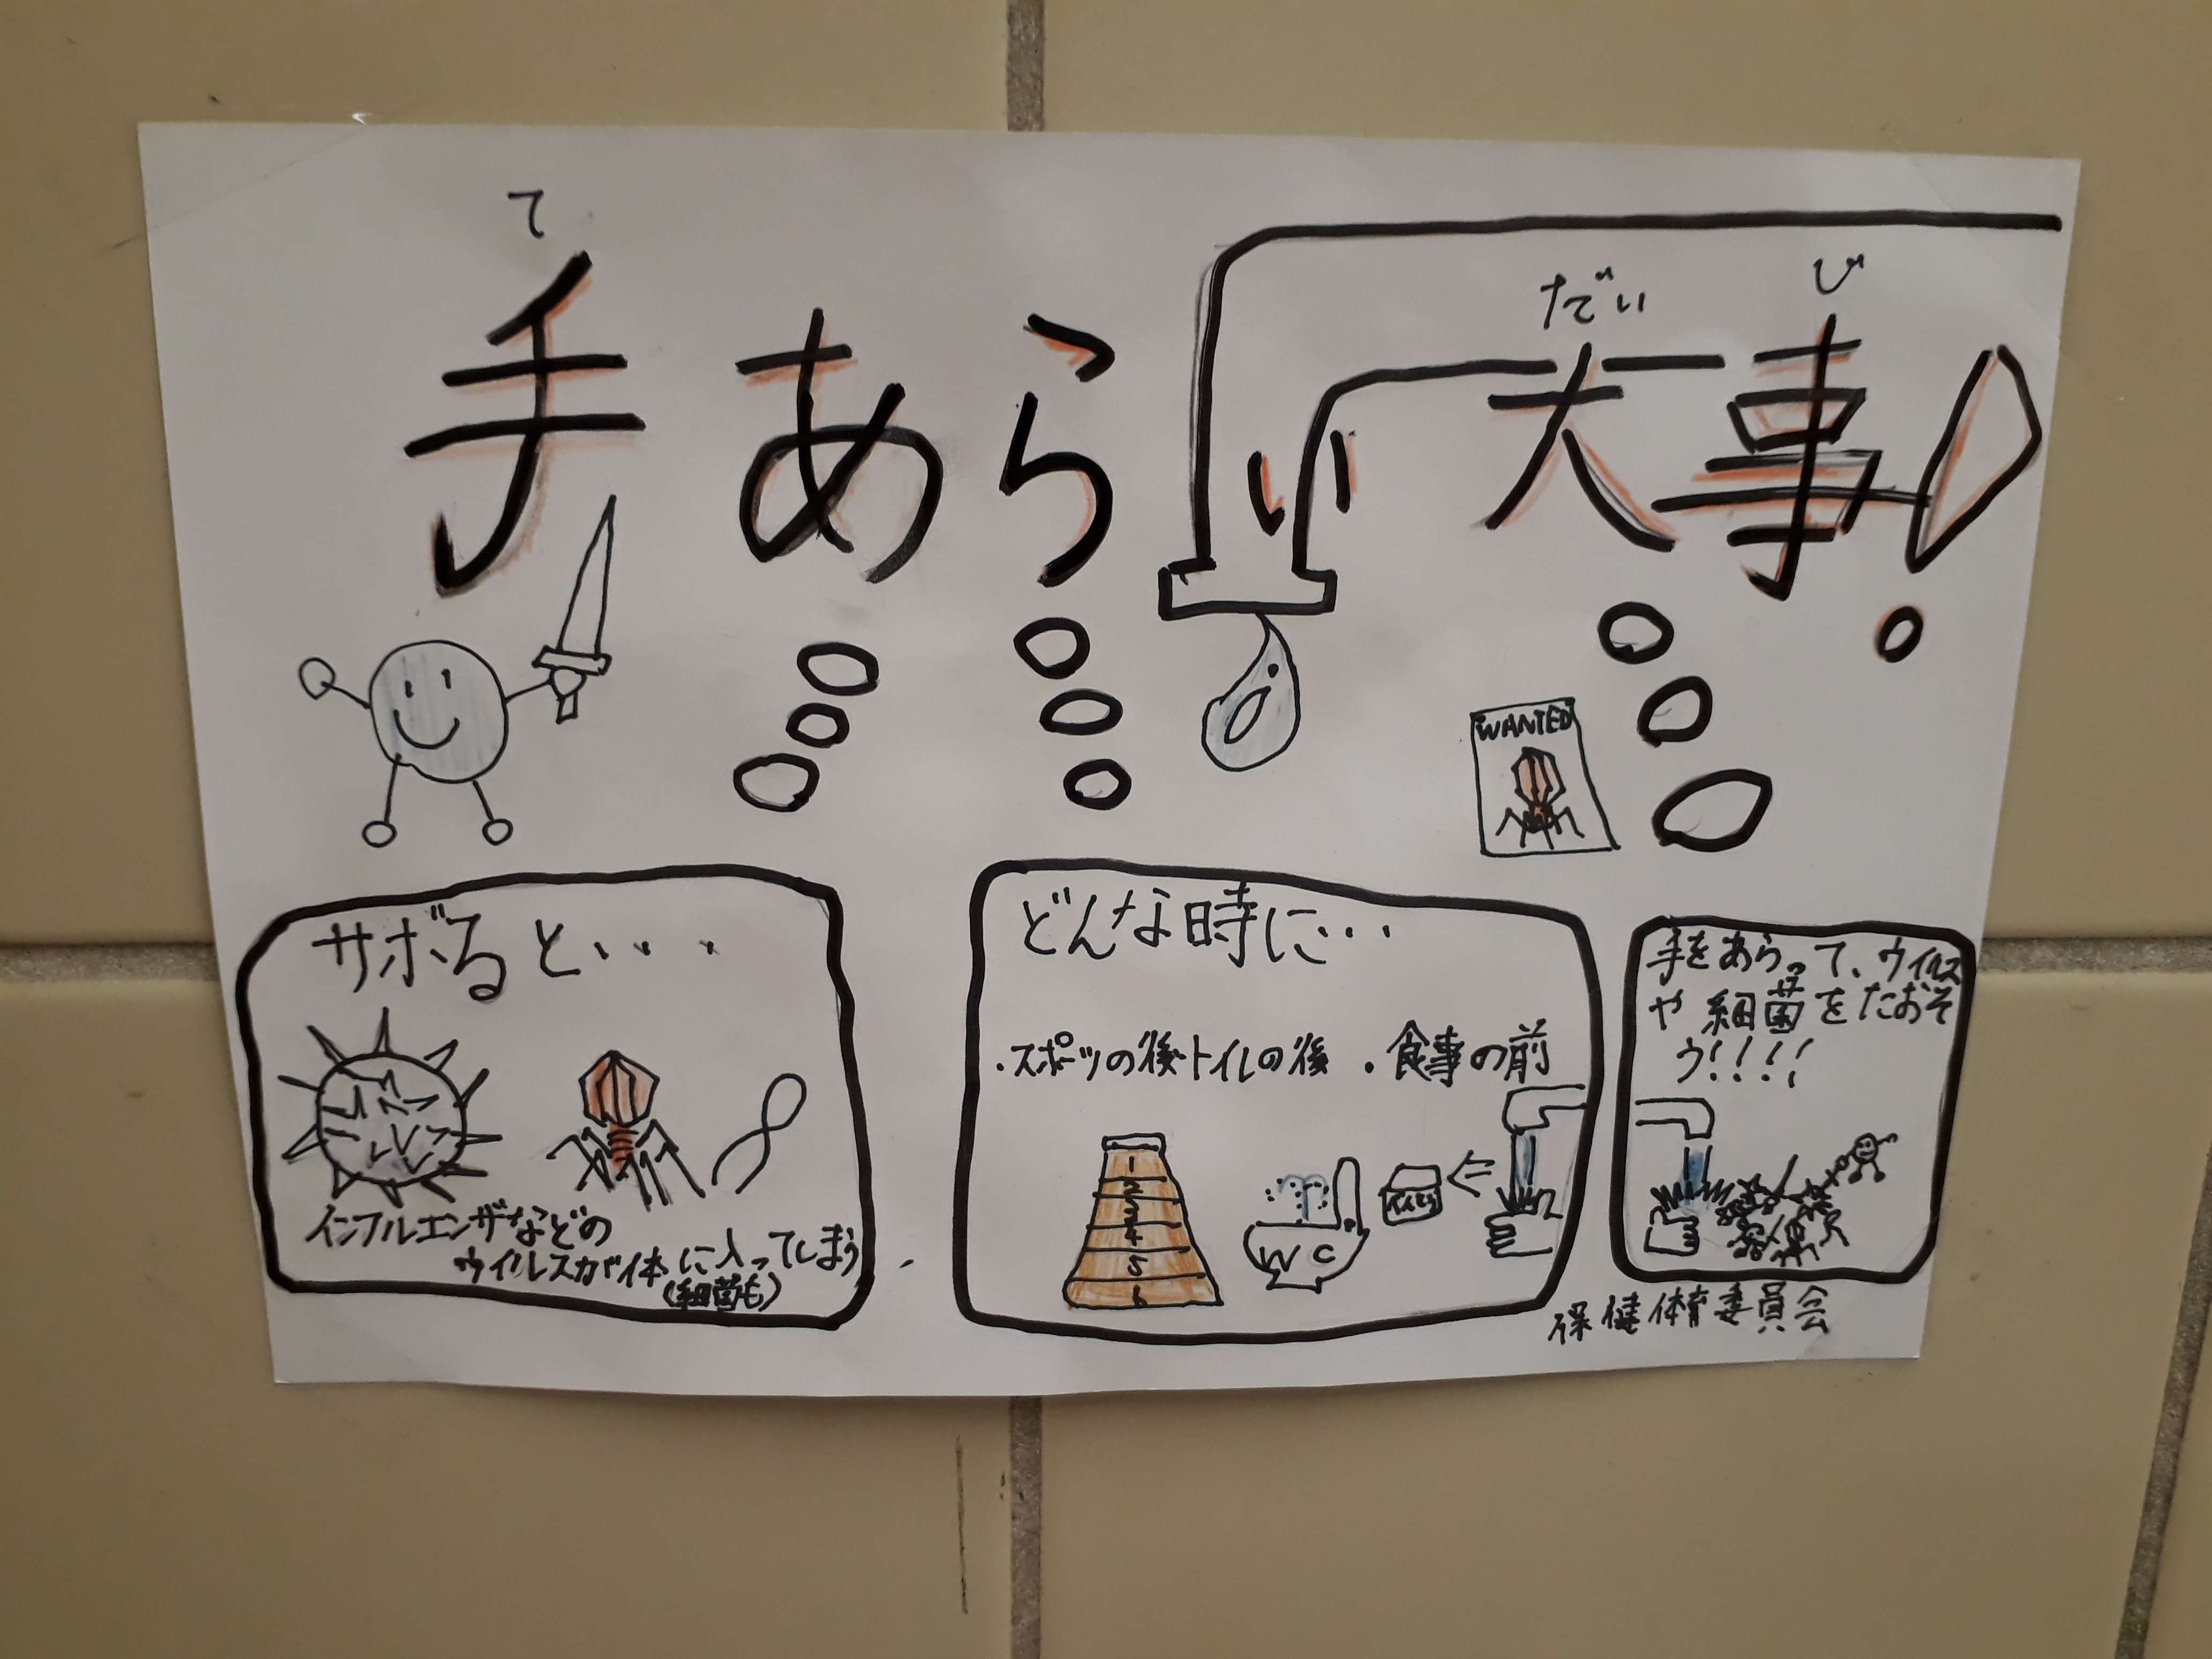 て
だい
じ
手あらい大事!
WANTED
サボると・・・
インフルエンザなどの
ウイルスが体に入ってしまう
(細菌も)
どんな時に・・・
・スポーツの後・トイレの後 ・食事の前
1
2
3
4
5
6
WC
手をあらって、ウイルス
や細菌をたおそ
う!!!!
保健体育委員会